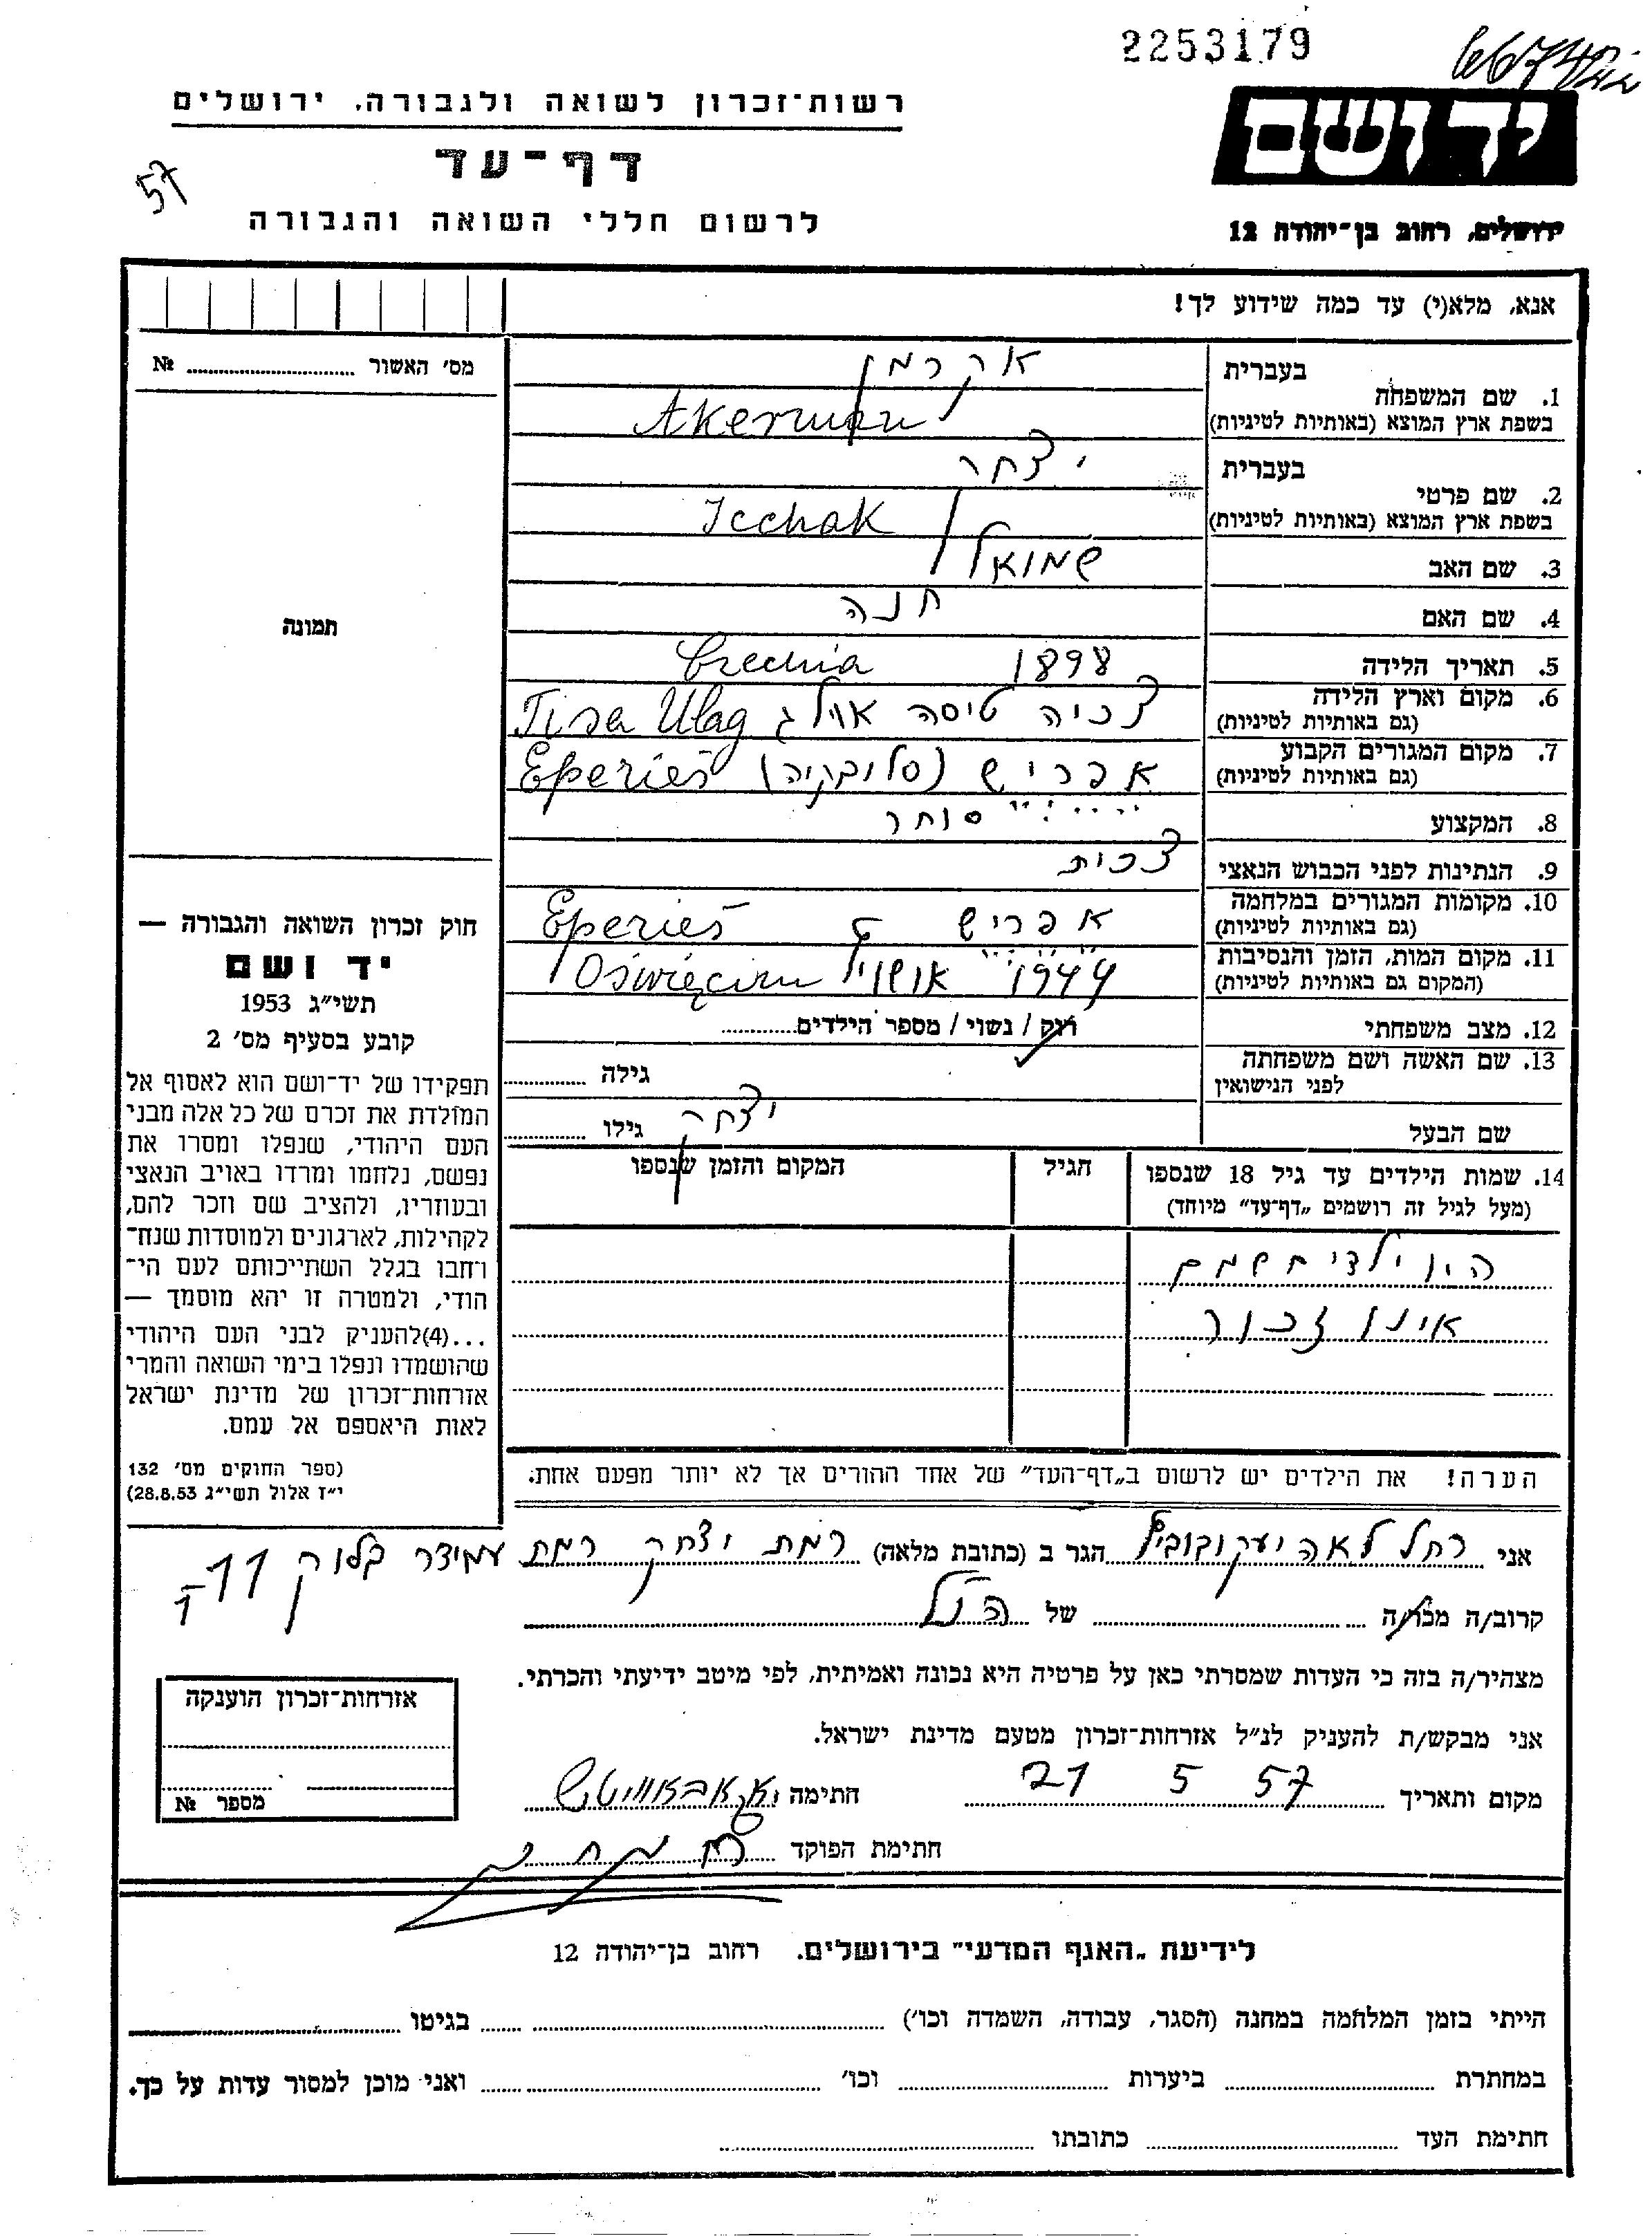 2253179
רשות־זכרון לשואה ולגבורה, ירושלים
יד ושם
דף־עד
57
לרשום חללי השואה והגבורה
ירושלים, רחוב בן־יהודה 12
אנא, מלא(י) עד כמה שידוע לך!
מס' האשור № ........
1. שם המשפחה בעברית אקרמן
בשפת ארץ המוצא (באותיות לטיניות) Akerman
2. שם פרטי בעברית יצחק
בשפת ארץ המוצא (באותיות לטיניות) Icchak
3. שם האב שמואל
4. שם האם חנה
תמונה
5. תאריך הלידה 1898 Czechia
6. מקום וארץ הלידה (גם באותיות לטיניות) צכיה טיסה אולג Tisa Ulag
7. מקום המגורים הקבוע (גם באותיות לטיניות) אפריש (סלובקיה) Eperieš
8. המקצוע סוחר
9. הנתינות לפני הכבוש הנאצי צכית
10. מקומות המגורים במלחמה (גם באותיות לטיניות) אפריש Eperieš
11. מקום המות, הזמן והנסיבות (המקום גם באותיות לטיניות) 1944 אושויץ Oświęcim
12. מצב משפחתי רוק / נשוי / מספר הילדים........
13. שם האשה ושם משפחתה לפני הנישואין גילה ........
שם הבעל יצחק גילו ........
14. שמות הילדים עד גיל 18 שנספו הגיל המקום והזמן שנספו
(מעל לגיל זה רושמים „דף־עד" מיוחד)
היו ילדים
אינו זכור
חוק זכרון השואה והגבורה —
יד ושם
תשי"ג 1953
קובע בסעיף מס' 2
תפקידו של יד־ושם הוא לאסוף אל
המולדת את זכרם של כל אלה מבני
העם היהודי, שנפלו ומסרו את
נפשם, נלחמו ומרדו באויב הנאצי
ובעוזריו, ולהציב שם וזכר להם,
לקהילות, לארגונים ולמוסדות שנח־
רבו בגלל השתייכותם לעם הי־
הודי, ולמטרה זו יהא מוסמך —
...(4)להעניק לבני העם היהודי
שהושמדו ונפלו בימי השואה והמרי
אזרחות־זכרון של מדינת ישראל
לאות היאספם אל עמם.
(ספר החוקים מס' 132
י"ז אלול תשי"ג 28.8.53)
הערה! את הילדים יש לרשום ב„דף־העד" של אחד ההורים אך לא יותר מפעם אחת.
אני רחל לאה יעקובוביץ הגר ב (כתובת מלאה) רמת יצחק רמת עמידר בלוק 11
קרוב/ה מכר/ה ........ של הנ"ל
מצהיר/ה בזה כי העדות שמסרתי כאן על פרטיה היא נכונה ואמיתית, לפי מיטב ידיעתי והכרתי.
אני מבקש/ת להעניק לנ"ל אזרחות־זכרון מטעם מדינת ישראל.
מקום ותאריך 21 5 57 חתימה
חתימת הפוקד
אזרחות־זכרון הוענקה
מספר №
לידיעת „האגף המדעי" בירושלים. רחוב בן־יהודה 12
הייתי בזמן המלחמה במחנה (הסגר, עבודה, השמדה וכו') ........ בגיטו ........
במחתרת ........ ביערות ........ וכו' ........ ואני מוכן למסור עדות על כך.
חתימת העד ........ כתובתו ........